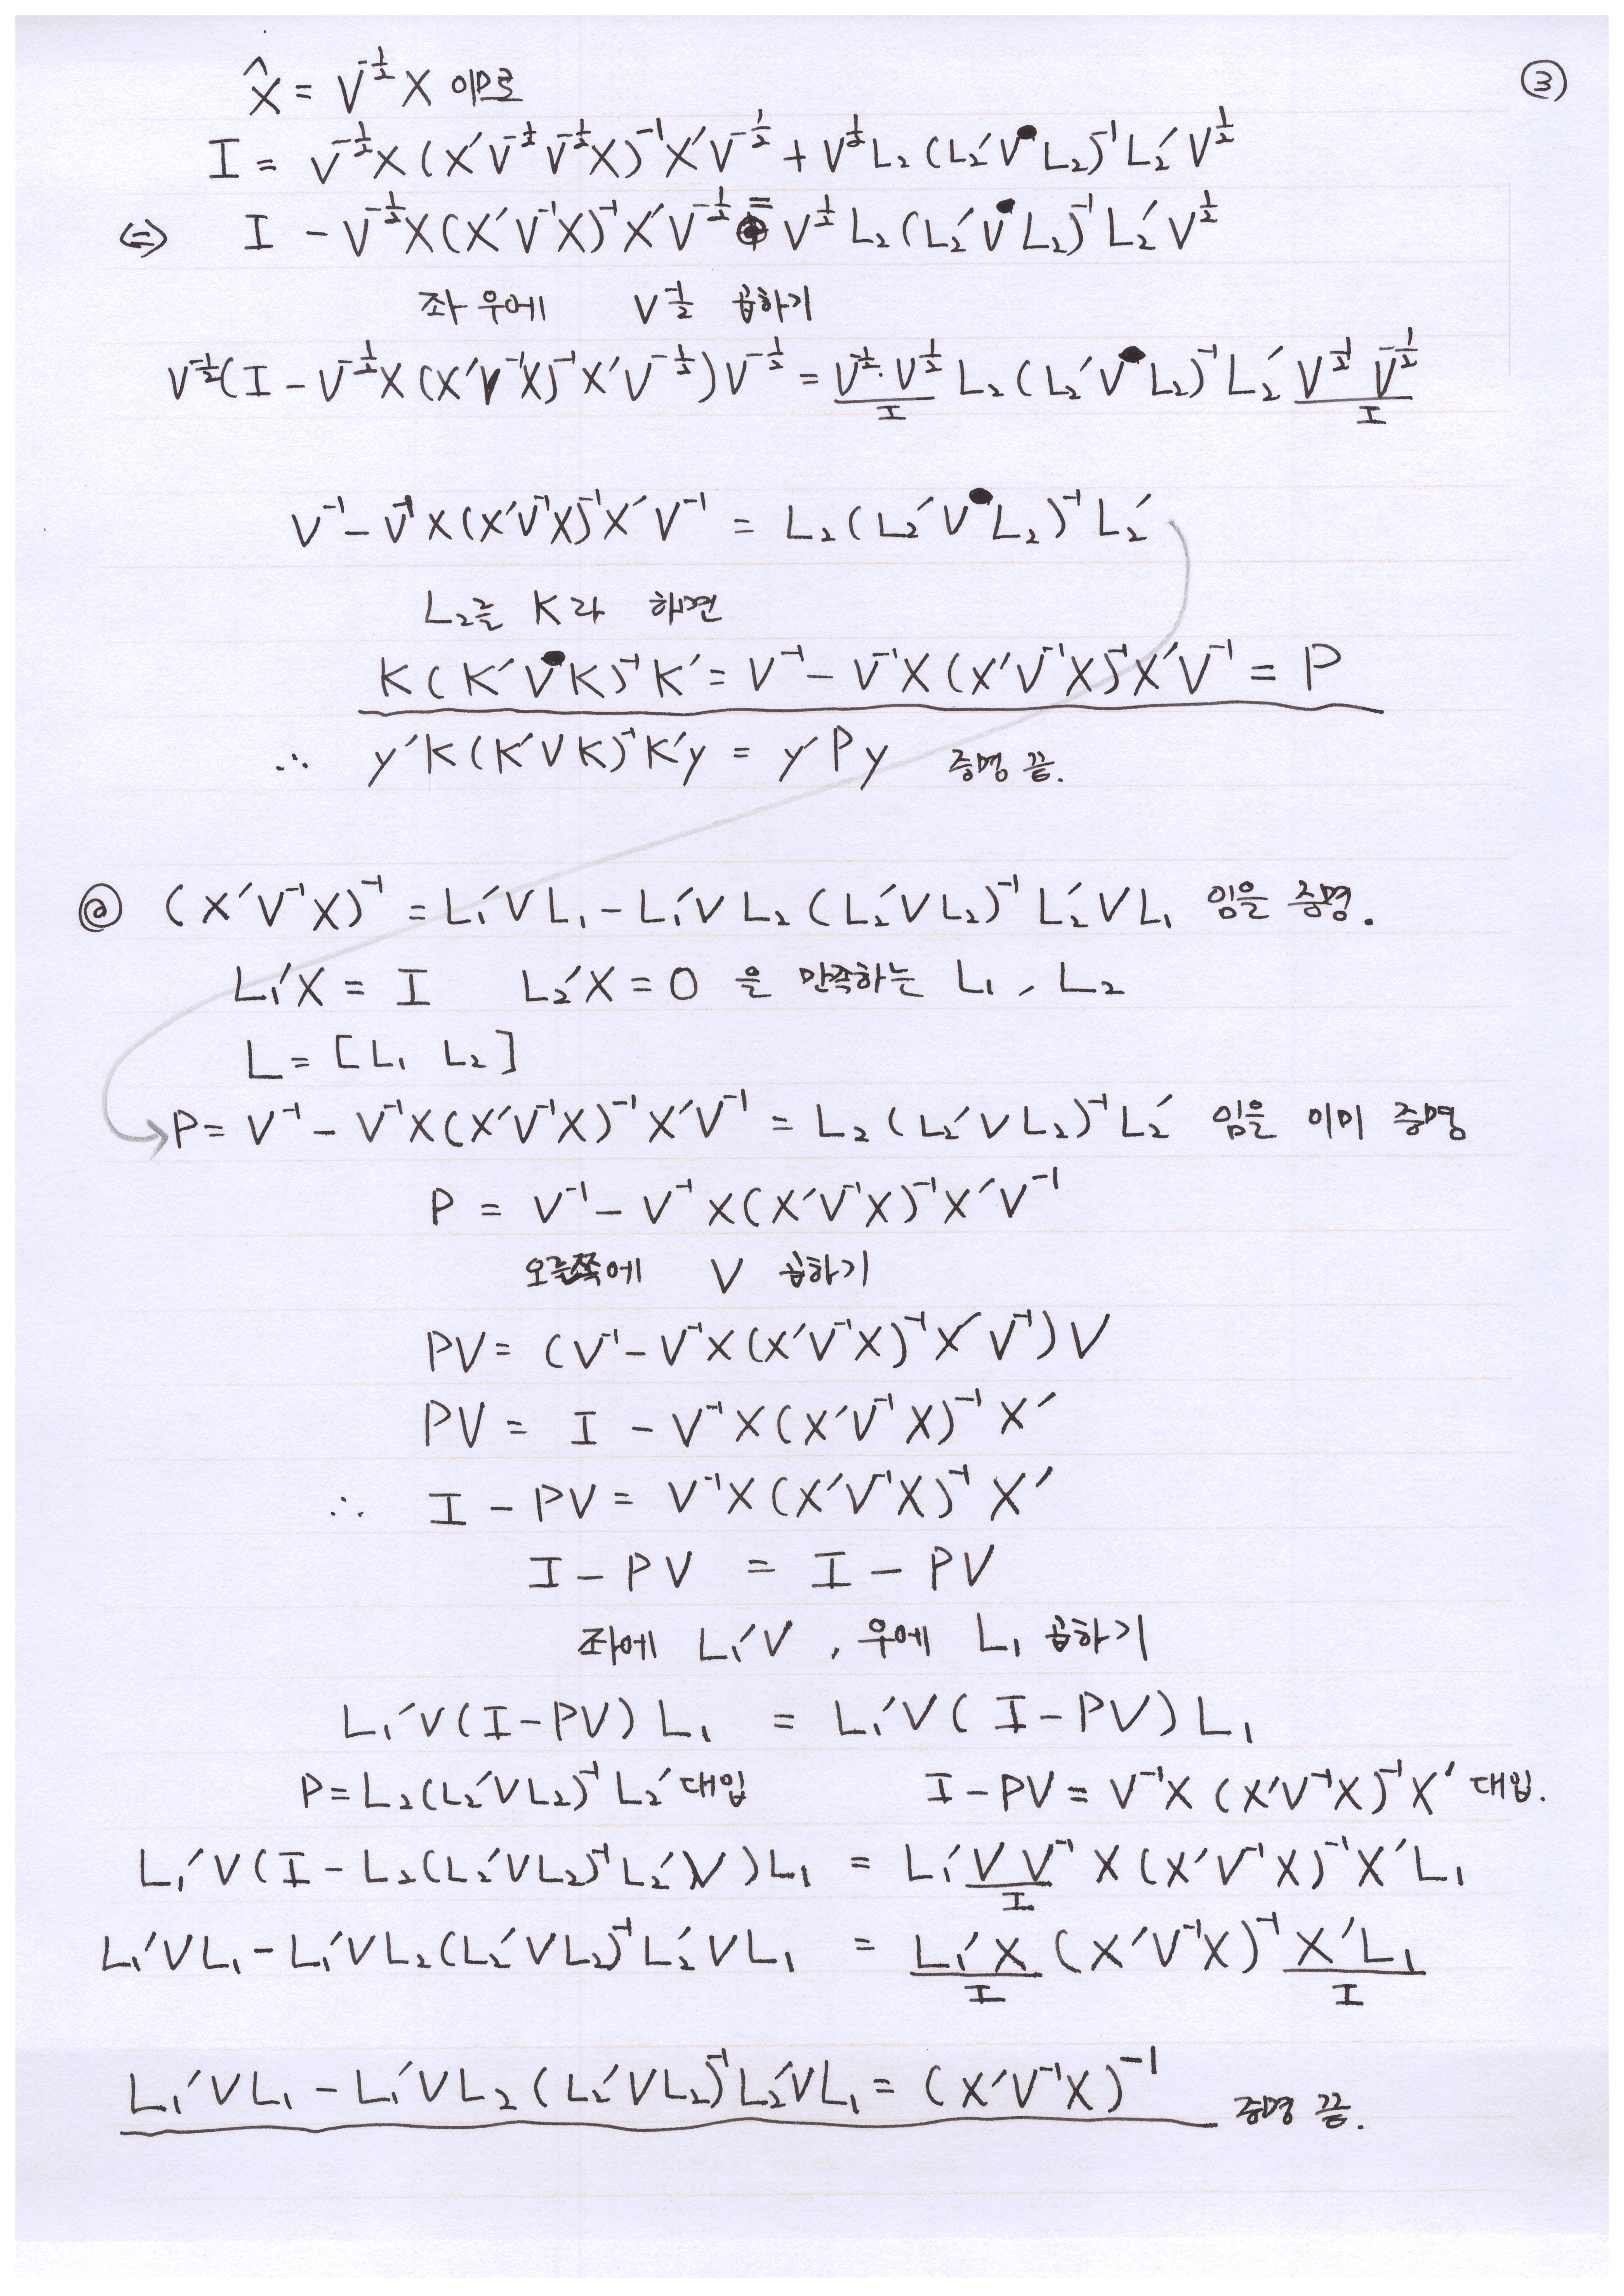 ③
X̂ = V^{-1/2} X 이므로
I = V^{-1/2}X(X′V^{-1/2}V^{-1/2}X)^{-1}X′V^{-1/2} + V^{1/2}L₂(L₂′V L₂)^{-1}L₂′V^{1/2}
⇔ I - V^{-1/2}X(X′V^{-1}X)^{-1}X′V^{-1/2} = V^{1/2}L₂(L₂′V L₂)^{-1}L₂′V^{1/2}
좌 우에 V^{-1/2} 곱하기
V^{-1/2}(I - V^{-1/2}X(X′V^{-1}X)^{-1}X′V^{-1/2})V^{-1/2} = V^{-1/2}·V^{1/2} L₂(L₂′V L₂)^{-1}L₂′ V^{1/2} V^{-1/2}
I I
V^{-1} - V^{-1}X(X′V^{-1}X)^{-1}X′V^{-1} = L₂(L₂′V L₂)^{-1}L₂′
L₂를 K라 하면
K(K′V K)^{-1}K′ = V^{-1} - V^{-1}X(X′V^{-1}X)^{-1}X′V^{-1} = P
∴ y′K(K′VK)^{-1}K′y = y′Py 증명 끝.
@ (X′V^{-1}X)^{-1} = L₁′VL₁ - L₁′VL₂(L₂′VL₂)^{-1}L₂′VL₁ 임을 증명.
L₁′X = I L₂′X = 0 을 만족하는 L₁, L₂
L = [L₁ L₂]
P = V^{-1} - V^{-1}X(X′V^{-1}X)^{-1}X′V^{-1} = L₂(L₂′VL₂)^{-1}L₂′ 임을 이미 증명
P = V^{-1} - V^{-1}X(X′V^{-1}X)^{-1}X′V^{-1}
오른쪽에 V 곱하기
PV = (V^{-1} - V^{-1}X(X′V^{-1}X)^{-1}X′V^{-1})V
PV = I - V^{-1}X(X′V^{-1}X)^{-1}X′
∴ I - PV = V^{-1}X(X′V^{-1}X)^{-1}X′
I - PV = I - PV
좌에 L₁′V, 우에 L₁ 곱하기
L₁′V(I-PV)L₁ = L₁′V(I-PV)L₁
P = L₂(L₂′VL₂)^{-1}L₂′ 대입 I - PV = V^{-1}X(X′V^{-1}X)^{-1}X′ 대입.
L₁′V(I - L₂(L₂′VL₂)^{-1}L₂′V)L₁ = L₁′VV^{-1}X(X′V^{-1}X)^{-1}X′L₁
I
L₁′VL₁ - L₁′VL₂(L₂′VL₂)^{-1}L₂′VL₁ = L₁′X(X′V^{-1}X)^{-1}X′L₁
I I
L₁′VL₁ - L₁′VL₂(L₂′VL₂)^{-1}L₂′VL₁ = (X′V^{-1}X)^{-1} 증명 끝.